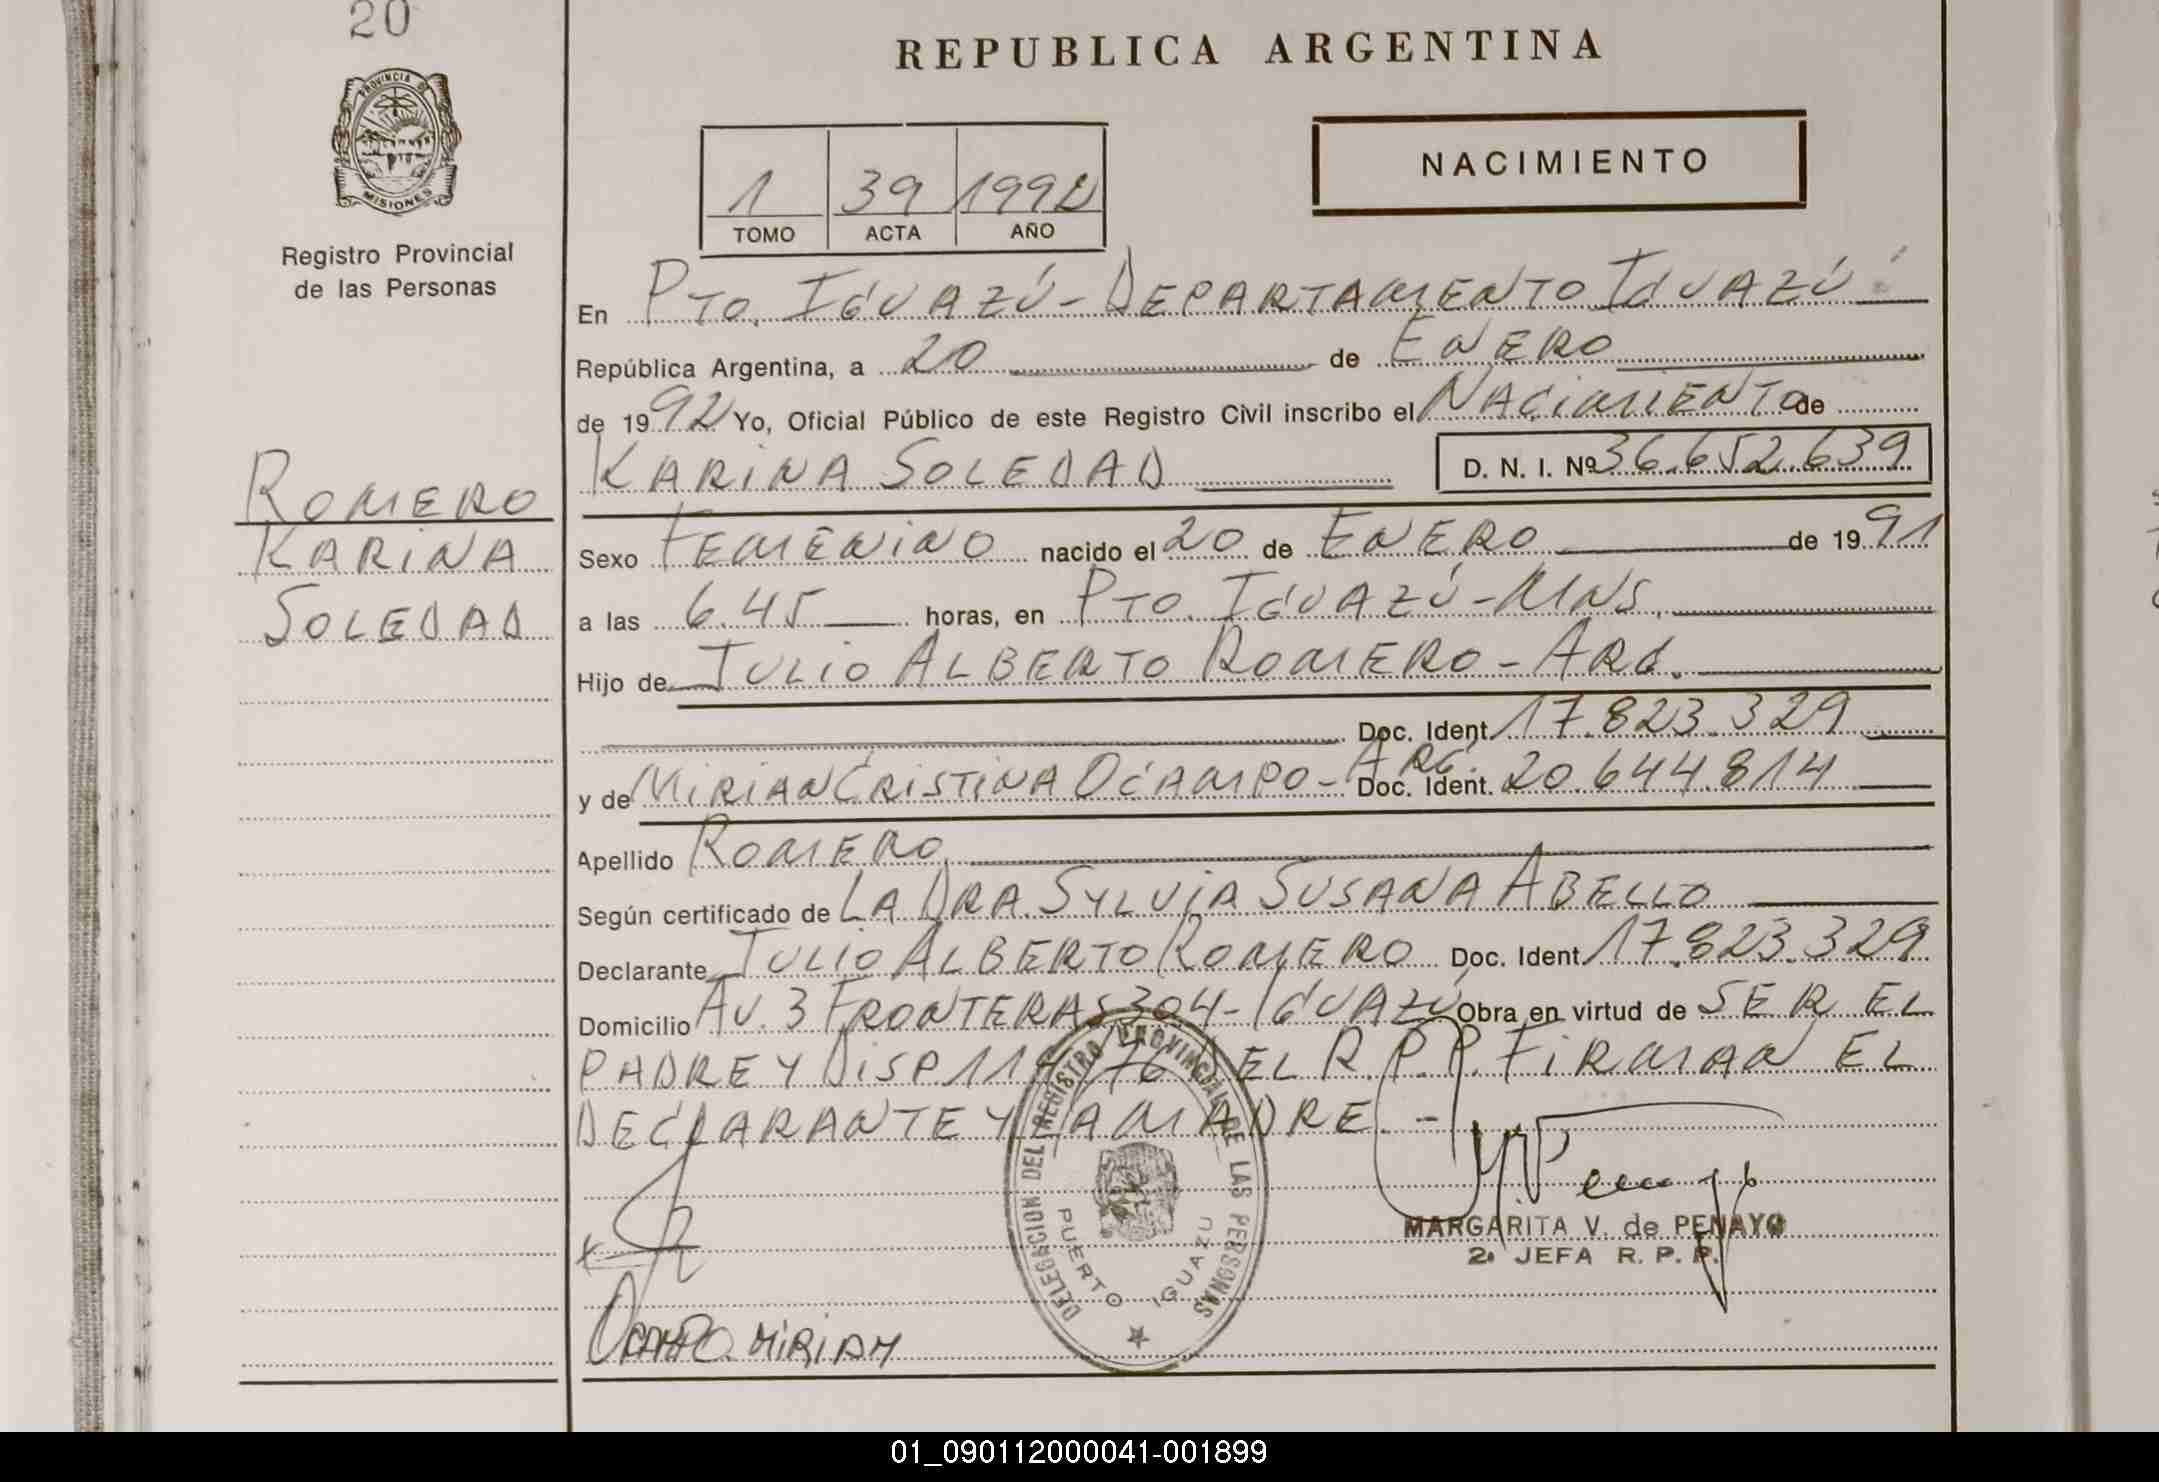 20
REPUBLICA ARGENTINA
PROVINCIA DE
MISIONES
Registro Provincial
de las Personas
1 39 1992
TOMO ACTA AÑO
NACIMIENTO
En PTO. IGUAZÚ - DEPARTAMENTO IGUAZÚ
República Argentina, a 20 de ENERO
de 1992 Yo, Oficial Público de este Registro Civil inscribo el NACIMIENTO de
KARINA SOLEDAD D. N. I. Nº 36.652.639
ROMERO
KARINA
SOLEDAD
Sexo FEMENINO nacido el 20 de ENERO de 1991
a las 6.45 horas, en PTO. IGUAZÚ - MNS.
Hijo de JULIO ALBERTO ROMERO - ARG.
Doc. Ident. 17.823.329
y de MIRIAN CRISTINA OCAMPO - ARG. Doc. Ident. 20.644.814
Apellido ROMERO
Según certificado de LA DRA. SYLVIA SUSANA ABELLO
Declarante JULIO ALBERTO ROMERO Doc. Ident. 17.823.329
Domicilio AV. 3 FRONTERAS 304 - IGUAZÚ Obra en virtud de SER EL
PADRE Y DISP. /76 DEL R.P.P. FIRMAN EL
DECLARANTE Y LA MADRE. -
DELEGACION DEL REGISTRO PROVINCIAL DE LAS PERSONAS
PUERTO IGUAZU
MARGARITA V. de PENAYO
2º JEFA R. P. P.
OCAMPO MIRIAM
01_090112000041-001899